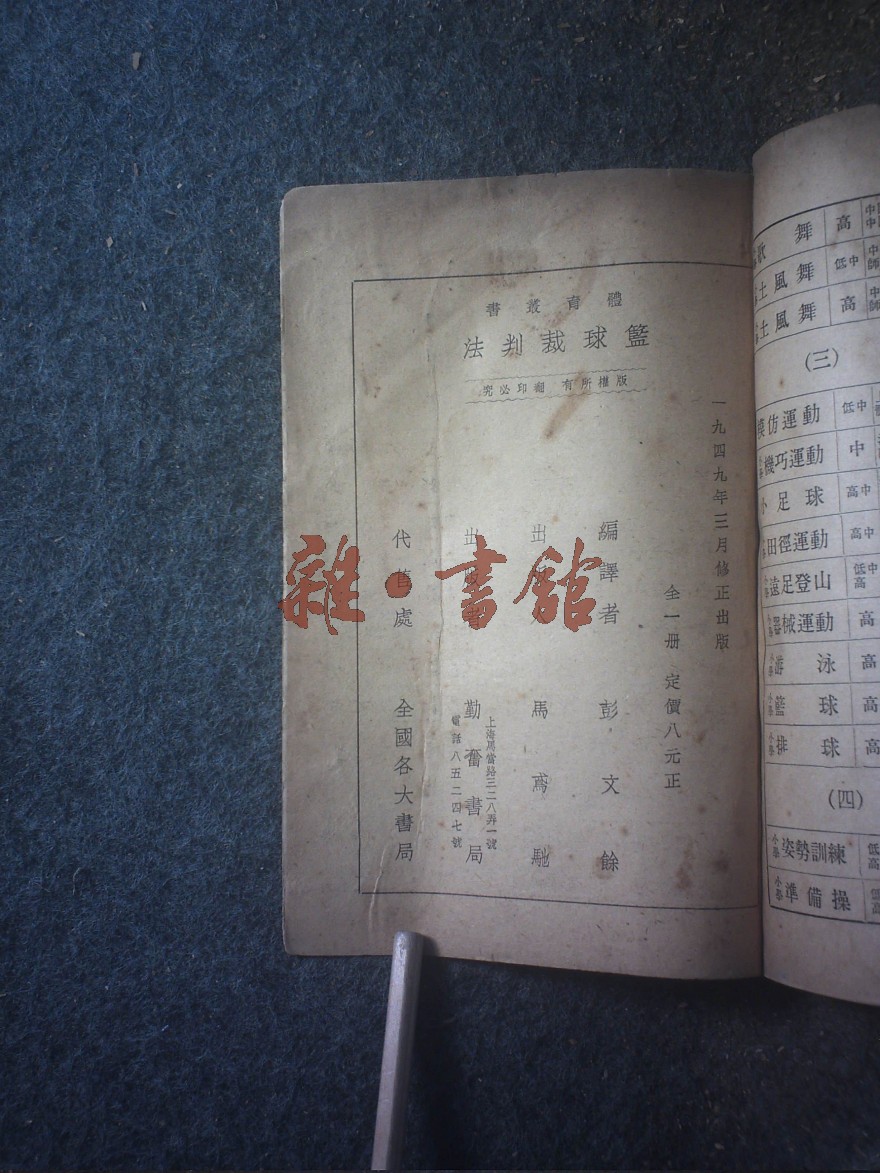 體育叢書
籃球裁判法
版權所有 翻印必究
一九四九年三月修正出版
全一册 定價八元正
編譯者 彭文餘
出 馬鳶馳
出 勤奮書局
上海馬當路三二八弄一號
電話八五二四七號
代售處 全國各大書局
雜·書舘
歌舞 高
土風舞 低中
土風舞 高
(三)
模仿運動 低中
機巧運動 中
小足球 高中
田徑運動 高中
遠足登山 低中高
器械運動 高
游泳 高
籃球 高
排球 高
(四)
小學 姿勢訓練 低高
小學 準備操